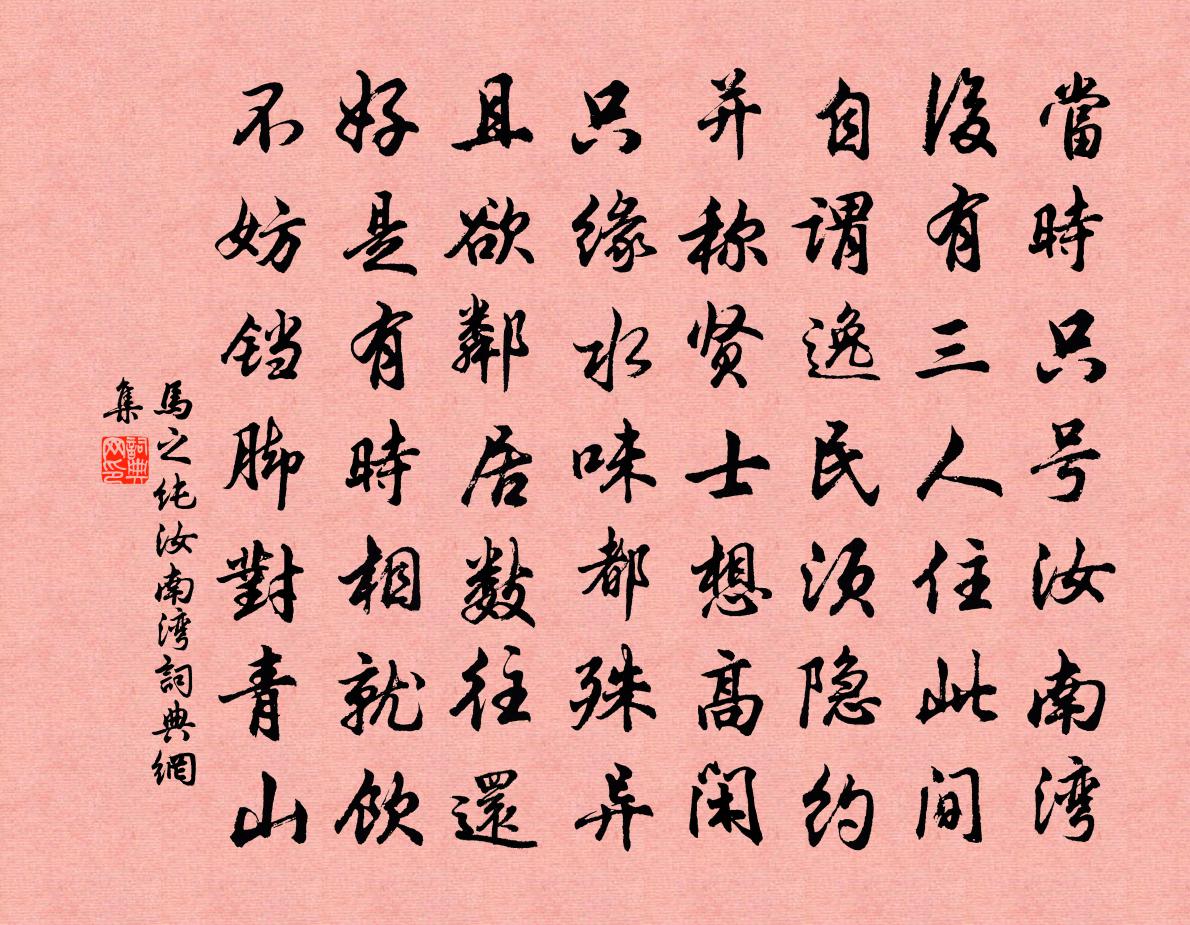 當時只号汝南湾
後有三人住此间
自谓逸民须隐约
并称贤士想高闲
只缘水味都殊异
且欲鄰居数往還
好是有時相就饮
不妨铛脚對青山
馬之纯汝南湾詞典網
集
詞典網印